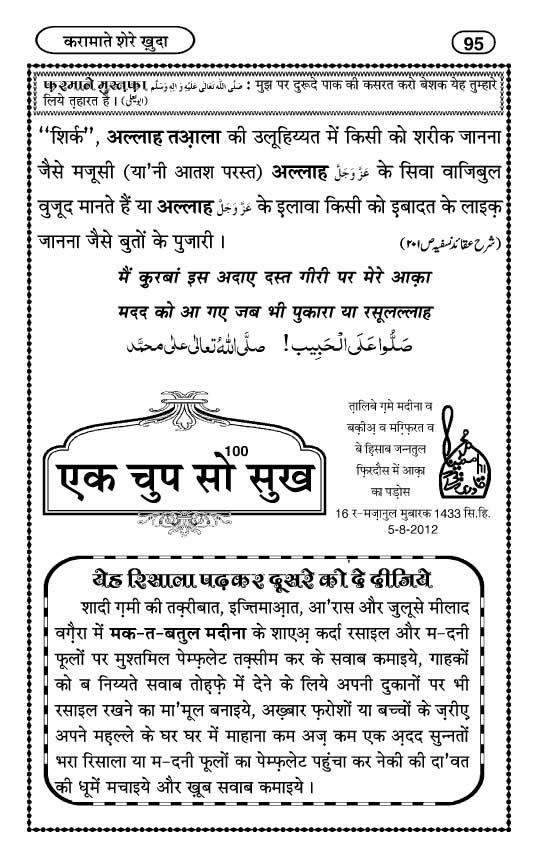 करामाते शेरे ख़ुदा
95
फ़रमाने मुस्तफ़ा صَلَّى اللهُ تَعَالٰى عَلَيْهِ وَاٰلِهٖ وَسَلَّم : मुझ पर दुरूदे पाक की कसरत करो बेशक येह तुम्हारे
लिये तहारत है । (ابو یعلی)
‘‘शिर्क’’, अल्लाह तआ़ला की उलूहिय्यत में किसी को शरीक जानना
जैसे मजूसी (या'नी आतश परस्त) अल्लाह عَزَّ وَجَلَّ के सिवा वाजिबुल
वुजूद मानते हैं या अल्लाह عَزَّ وَجَلَّ के इलावा किसी को इबादत के लाइक़
जानना जैसे बुतों के पुजारी । (شرح عقائد نسفیہ ص ٢٠١)
मैं क़ुरबां इस अदाए दस्त गीरी पर मेरे आक़ा
मदद को आ गए जब भी पुकारा या रसूलल्लाह
صَلُّوا عَلَى الْحَبِيب! صلَّى اللهُ تعالٰى على محمَّد
एक चुप सो 100 सुख
तालिबे ग़मे मदीना व
बक़ीअ़ व मग़्फ़िरत व
बे हिसाब जन्नतुल
फ़िरदौस में आक़ा
का पड़ोस
16 र-मज़ानुल मुबारक 1433 सि.हि.
5-8-2012
येह रिसाला पढ़ कर दूसरे को दे दीजिये
शादी ग़मी की तक़रीबात, इज्तिमाआ़त, आ'रास और जुलूसे मीलाद
वग़ैरा में मक-त-बतुल मदीना के शाएअ़ कर्दा रसाइल और म-दनी
फूलों पर मुश्तमिल पेम्फ़लेट तक़्सीम कर के सवाब कमाइये, गाहकों
को ब निय्यते सवाब तोह़फ़े में देने के लिये अपनी दुकानों पर भी
रसाइल रखने का मा'मूल बनाइये, अख़्बार फ़रोशों या बच्चों के ज़रीए
अपने महल्ले के घर घर में माहाना कम अज़ कम एक अ़दद सुन्नतों
भरा रिसाला या म-दनी फूलों का पेम्फ़लेट पहुंचा कर नेकी की दा'वत
की धूमें मचाइये और ख़ूब सवाब कमाइये ।